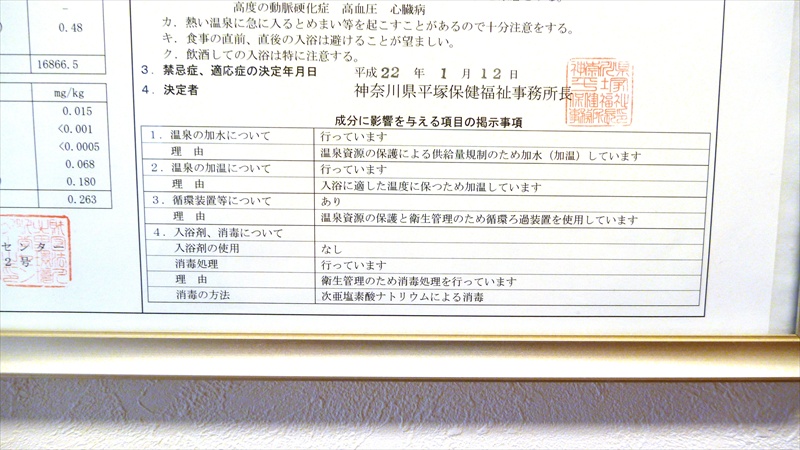 高度の動脈硬化症 高血圧 心臓病
カ．熱い温泉に急に入るとめまい等を起こすことがあるので十分注意をする。
キ．食事の直前、直後の入浴は避けることが望ましい。
ク．飲酒しての入浴は特に注意する。
3．禁忌症、適応症の決定年月日 平成 22 年 1 月 12 日
4．決定者 神奈川県平塚保健福祉事務所長
0.48
16866.5
mg/kg
0.015
<0.001
<0.0005
0.068
0.180
0.263
センター
2号
成分に影響を与える項目の掲示事項
1．温泉の加水について 行っています
理 由 温泉資源の保護による供給量規制のため加水（加温）しています
2．温泉の加温について 行っています
理 由 入浴に適した温度に保つため加温しています
3．循環装置等について あり
理 由 温泉資源の保護と衛生管理のため循環ろ過装置を使用しています
4．入浴剤、消毒について
入浴剤の使用 なし
消毒処理 行っています
理 由 衛生管理のため消毒処理を行っています
消毒の方法 次亜塩素酸ナトリウムによる消毒